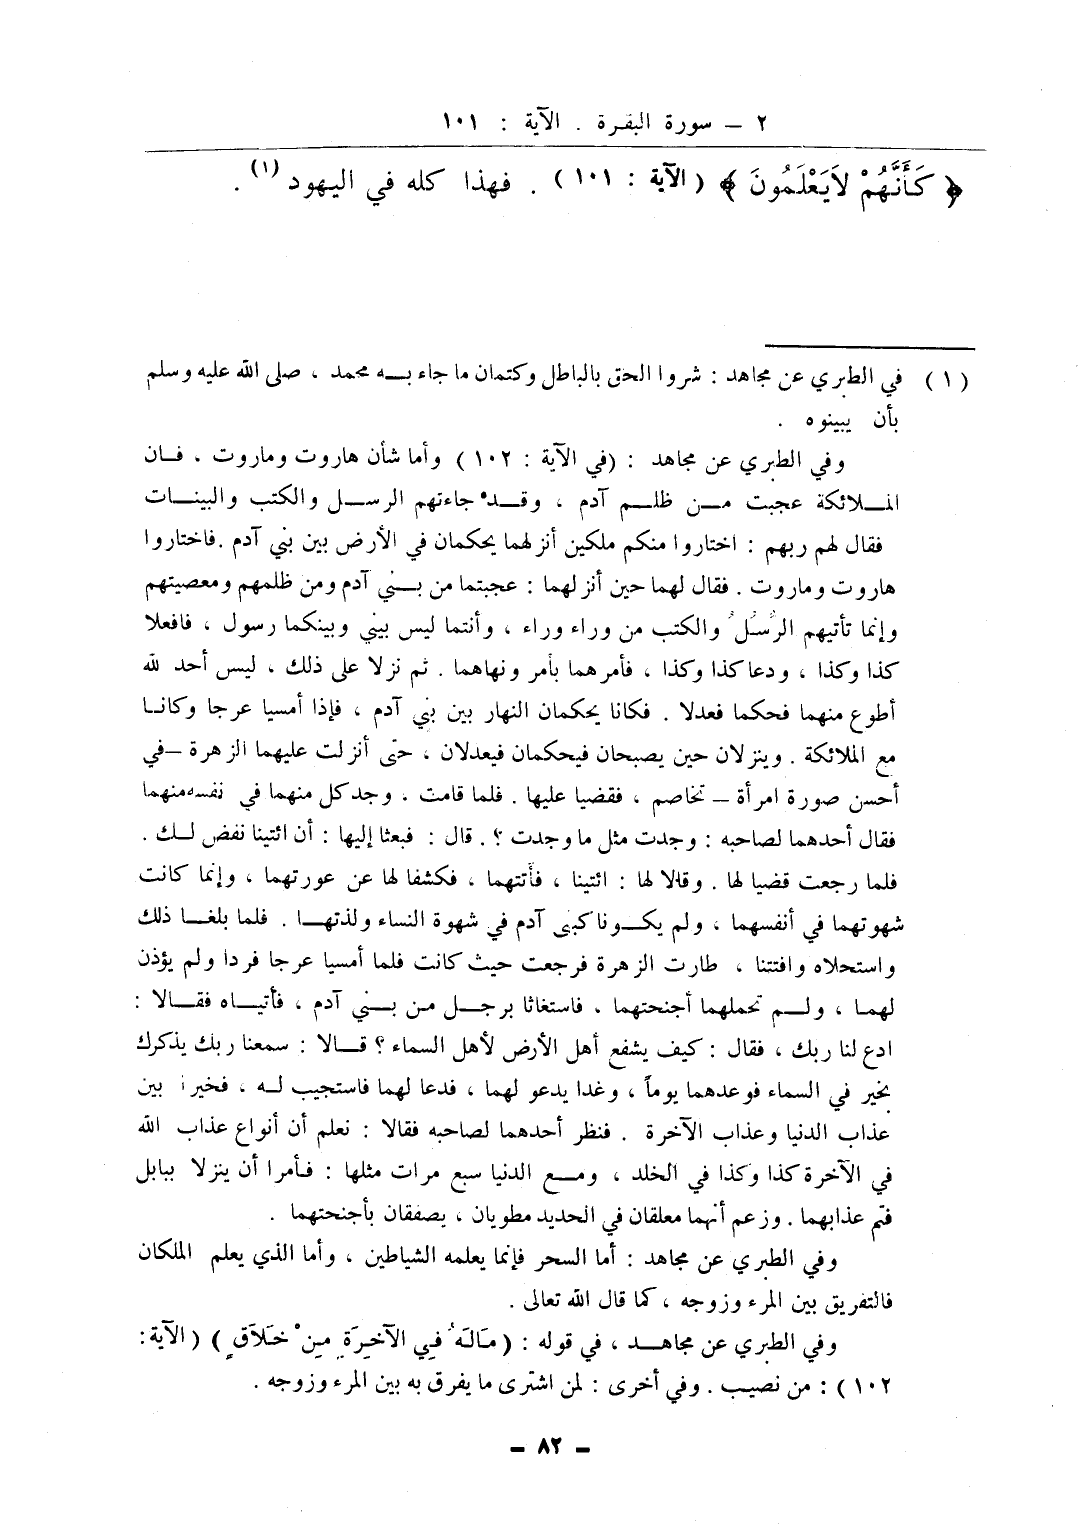 ٢ – سورة البقرة . الآية : ١٠١
﴿ كَأَنَّهُمْ لاَيَعْلَمُونَ ﴾ ( الآية : ١٠١ ) . فهذا كله في اليهود (١) .
( ١ ) في الطبري عن مجاهد : شروا الحق بالباطل وكتمان ما جاء بــه محمد ، صلى الله عليه وسلم
بأن يبينوه .
وفي الطبري عن مجاهد : (في الآية : ١٠٢ ) وأما شأن هاروت وماروت ، فــان
المــلائكة عجبت مــن ظلــم آدم ، وقــدْ جاءتهم الرســل والكتب والبينــات
فقال لهم ربهم : اختاروا منكم ملكين أنزلهما يحكمان في الأرض بين بني آدم .فاختاروا
هاروت وماروت . فقال لهما حين أنزلهما : عجبتما من بــني آدم ومن ظلمهم ومعصيتهم
وإنما تأتيهم الرُّسُلُ والكتب من وراء وراء ، وأنتما ليس بيني وبينكما رسول ، فافعلا
كذا وكذا ، ودعا كذا وكذا ، فأمرهما بأمر ونهاهما . ثم نزلا على ذلك ، ليس أحد لله
أطوع منهما فحكما فعدلا . فكانا يحكمان النهار بين بني آدم ، فإذا أمسيا عرجا وكانــا
مع الملائكة . وينزلان حين يصبحان فيحكمان فيعدلان ، حتى أنزلت عليهما الزهرة –في
أحسن صورة امرأة – تخاصم ، فقضيا عليها . فلما قامت ، وجد كل منهما في نفسه منهما
فقال أحدهما لصاحبه : وجدت مثل ما وجدت ؟ . قال : فبعثا إليها : أن ائتينا نفض لــك .
فلما رجعت قضيا لها . وقالا لها : ائتينا ، فأتتهما ، فكشفا لها عن عورتهما ، وإنما كانت
شهوتهما في أنفسهما ، ولم يكــونا كبى آدم في شهوة النساء ولذتهــا . فلما بلغــا ذلك
واستحلاه وافتتنا ، طارت الزهرة فرجعت حيث كانت فلما أمسيا عرجا فردا ولم يؤذن
لهمـا ، ولــم تحملهما أجنحتهما . فاستغاثا برجــل من بــني آدم ، فأتيــاه فقــالا :
ادع لنا ربك ، فقال : كيف يشفع أهل الأرض لأهل السماء ؟ قــالا : سمعنا ربك يذكرك
بخير في السماء فوعدهما يوماً ، وغدا يدعو لهما ، فدعا لهما فاستجيب لــه ، فخيرا بين
عذاب الدنيا وعذاب الآخرة . فنظر أحدهما لصاحبه فقالا : نعلم أن أنواع عذاب الله
في الآخرة كذا وكذا في الخلد ، ومــع الدنيا سبع مرات مثلها : فـأمرا أن ينزلا ببابل
فثم عذابهما . وزعم أنهما معلقان في الحديد مطويان ، يصفقان بأجنحتهما .
وفي الطبري عن مجاهد : أما السحر فإنما يعلمه الشياطين ، وأما الذي يعلم الملكان
فالتفريق بين المرء وزوجه ، كما قال الله تعالى .
وفي الطبري عن مجاهــد ، في قوله : ( مَالَهُ فِي الآخِرَةِ مِنْ خَلَاقٍ ) ( الآية:
١٠٢ ) : من نصيب . وفي أخرى : لمن اشترى ما يفرق به بين المرء وزوجه .
– ٨٢ –